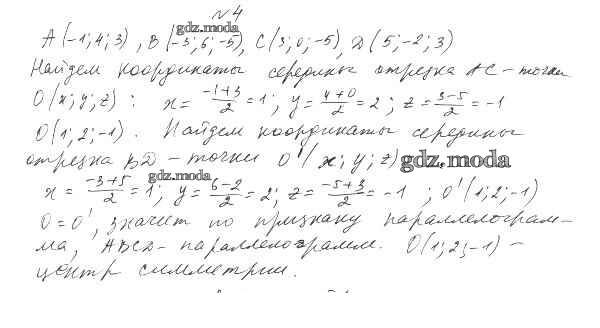 №4
gdz.moda
A(-1;4;3), B(-3;6;-5), C(3;0;-5), D(5;-2;3)
Найдем координаты середины отрезка AC - точки
O(x;y;z): x = -1+3/2 = 1; y = 4+0/2 = 2; z = 3-5/2 = -1
O(1;2;-1). Найдем координаты середины
отрезка BD - точки O'(x;y;z) gdz.moda
gdz.moda
x = -3+5/2 = 1; y = 6-2/2 = 2; z = -5+3/2 = -1; O'(1;2;-1)
O=O', значит по признаку параллелограм-
ма, ABCD - параллелограмм. O(1;2;-1) -
центр симметрии.